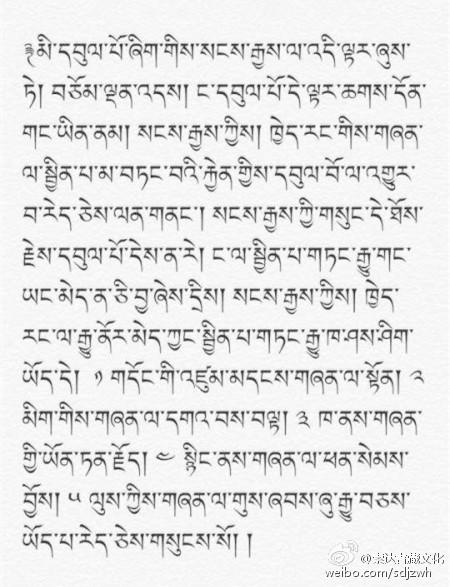 ༄༅།མི་དབུལ་པོ་ཞིག་གིས་སངས་རྒྱས་ལ་འདི་ལྟར་ཞུས་
ཏེ། བཅོམ་ལྡན་འདས། ང་དབུལ་པོ་དེ་ལྟར་ཆགས་དོན་
གང་ཡིན་ནམ། སངས་རྒྱས་ཀྱིས། ཁྱེད་རང་གིས་གཞན་
ལ་སྦྱིན་པ་མ་བཏང་བའི་རྐྱེན་གྱིས་དབུལ་བོ་ལ་འགྱུར་
བ་རེད་ཅེས་ལན་གནང་། སངས་རྒྱས་ཀྱི་གསུང་དེ་ཐོས་
རྗེས་དབུལ་པོ་དེས་ན་རེ། ང་ལ་སྦྱིན་པ་གཏང་རྒྱུ་གང་
ཡང་མེད་ན་ཅི་བྱ་ཞེས་དྲིས། སངས་རྒྱས་ཀྱིས། ཁྱེད་
རང་ལ་རྒྱུ་ནོར་མེད་ཀྱང་སྦྱིན་པ་གཏང་རྒྱུ་ཁ་ཤས་ཤིག་
ཡོད་དེ། ༡ གདོང་གི་འཛུམ་མདངས་གཞན་ལ་སྟོན། ༢
མིག་གིས་གཞན་ལ་དགའ་བས་བལྟ། ༣ ཁ་ནས་གཞན་
གྱི་ཡོན་ཏན་རྗོད། ༤ སྙིང་ནས་གཞན་ལ་ཕན་སེམས་
བྱོས། ༥ ལུས་ཀྱིས་གཞན་ལ་གུས་ཞབས་ཞུ་རྒྱུ་བཅས་
ཡོད་པ་རེད་ཅེས་གསུངས་སོ། །
weibo.com/sdjzwh